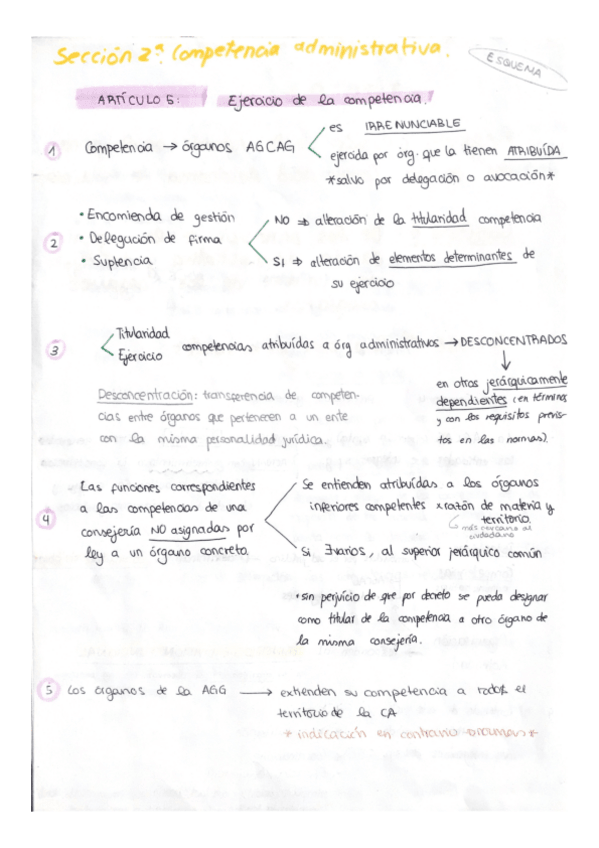 Sección 2ª. Competencia administrativa.
ESQUEMA
ARTÍCULO 5: Ejercicio de la competencia.
1 Competencia → órganos AGCAG
es IRRENUNCIABLE
ejercida por órg. que la tienen ATRIBUÍDA
*salvo por delegación o avocación*
2
• Encomienda de gestión
• Delegación de firma
• Suplencia
NO ⇒ alteración de la titularidad competencia
SI ⇒ alteración de elementos determinantes de
su ejercicio
3
Titularidad
Ejercicio
competencias atribuídas a órg administrativos → DESCONCENTRADOS
en otros jerárquicamente
dependientes (en términos
y con los requisitos previs-
tos en las normas).
Desconcentración: transferencia de competen-
cias entre órganos que pertenecen a un ente
con la misma personalidad jurídica.
4
Las funciones correspondientes
a las competencias de una
consejería NO asignadas por
ley a un órgano concreto.
Se entienden atribuídas a los órganos
inferiores competentes x razón de materia y
territorio.
más cercano al
ciudadano
Si ∃varios, al superior jerárquico común
• sin perjuicio de que por decreto se pueda designar
como titular de la competencia a otro órgano de
la misma consejería.
5 Los órganos de la AGG → extienden su competencia a todo el
territorio de la CA
*indicación en contrario